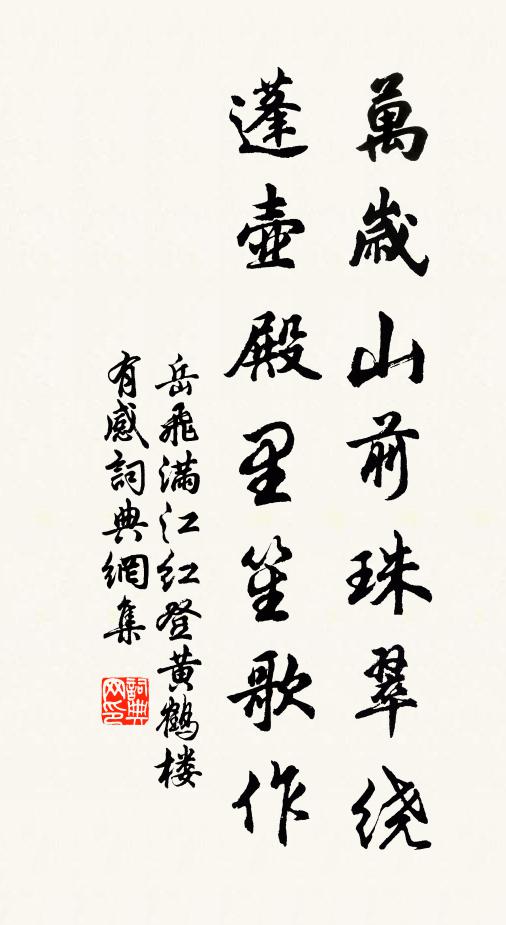 萬歲山前珠翠绕
蓬壺殿里笙歌作
岳飛滿江紅登黄鶴楼
有感詞典網集
詞典网印